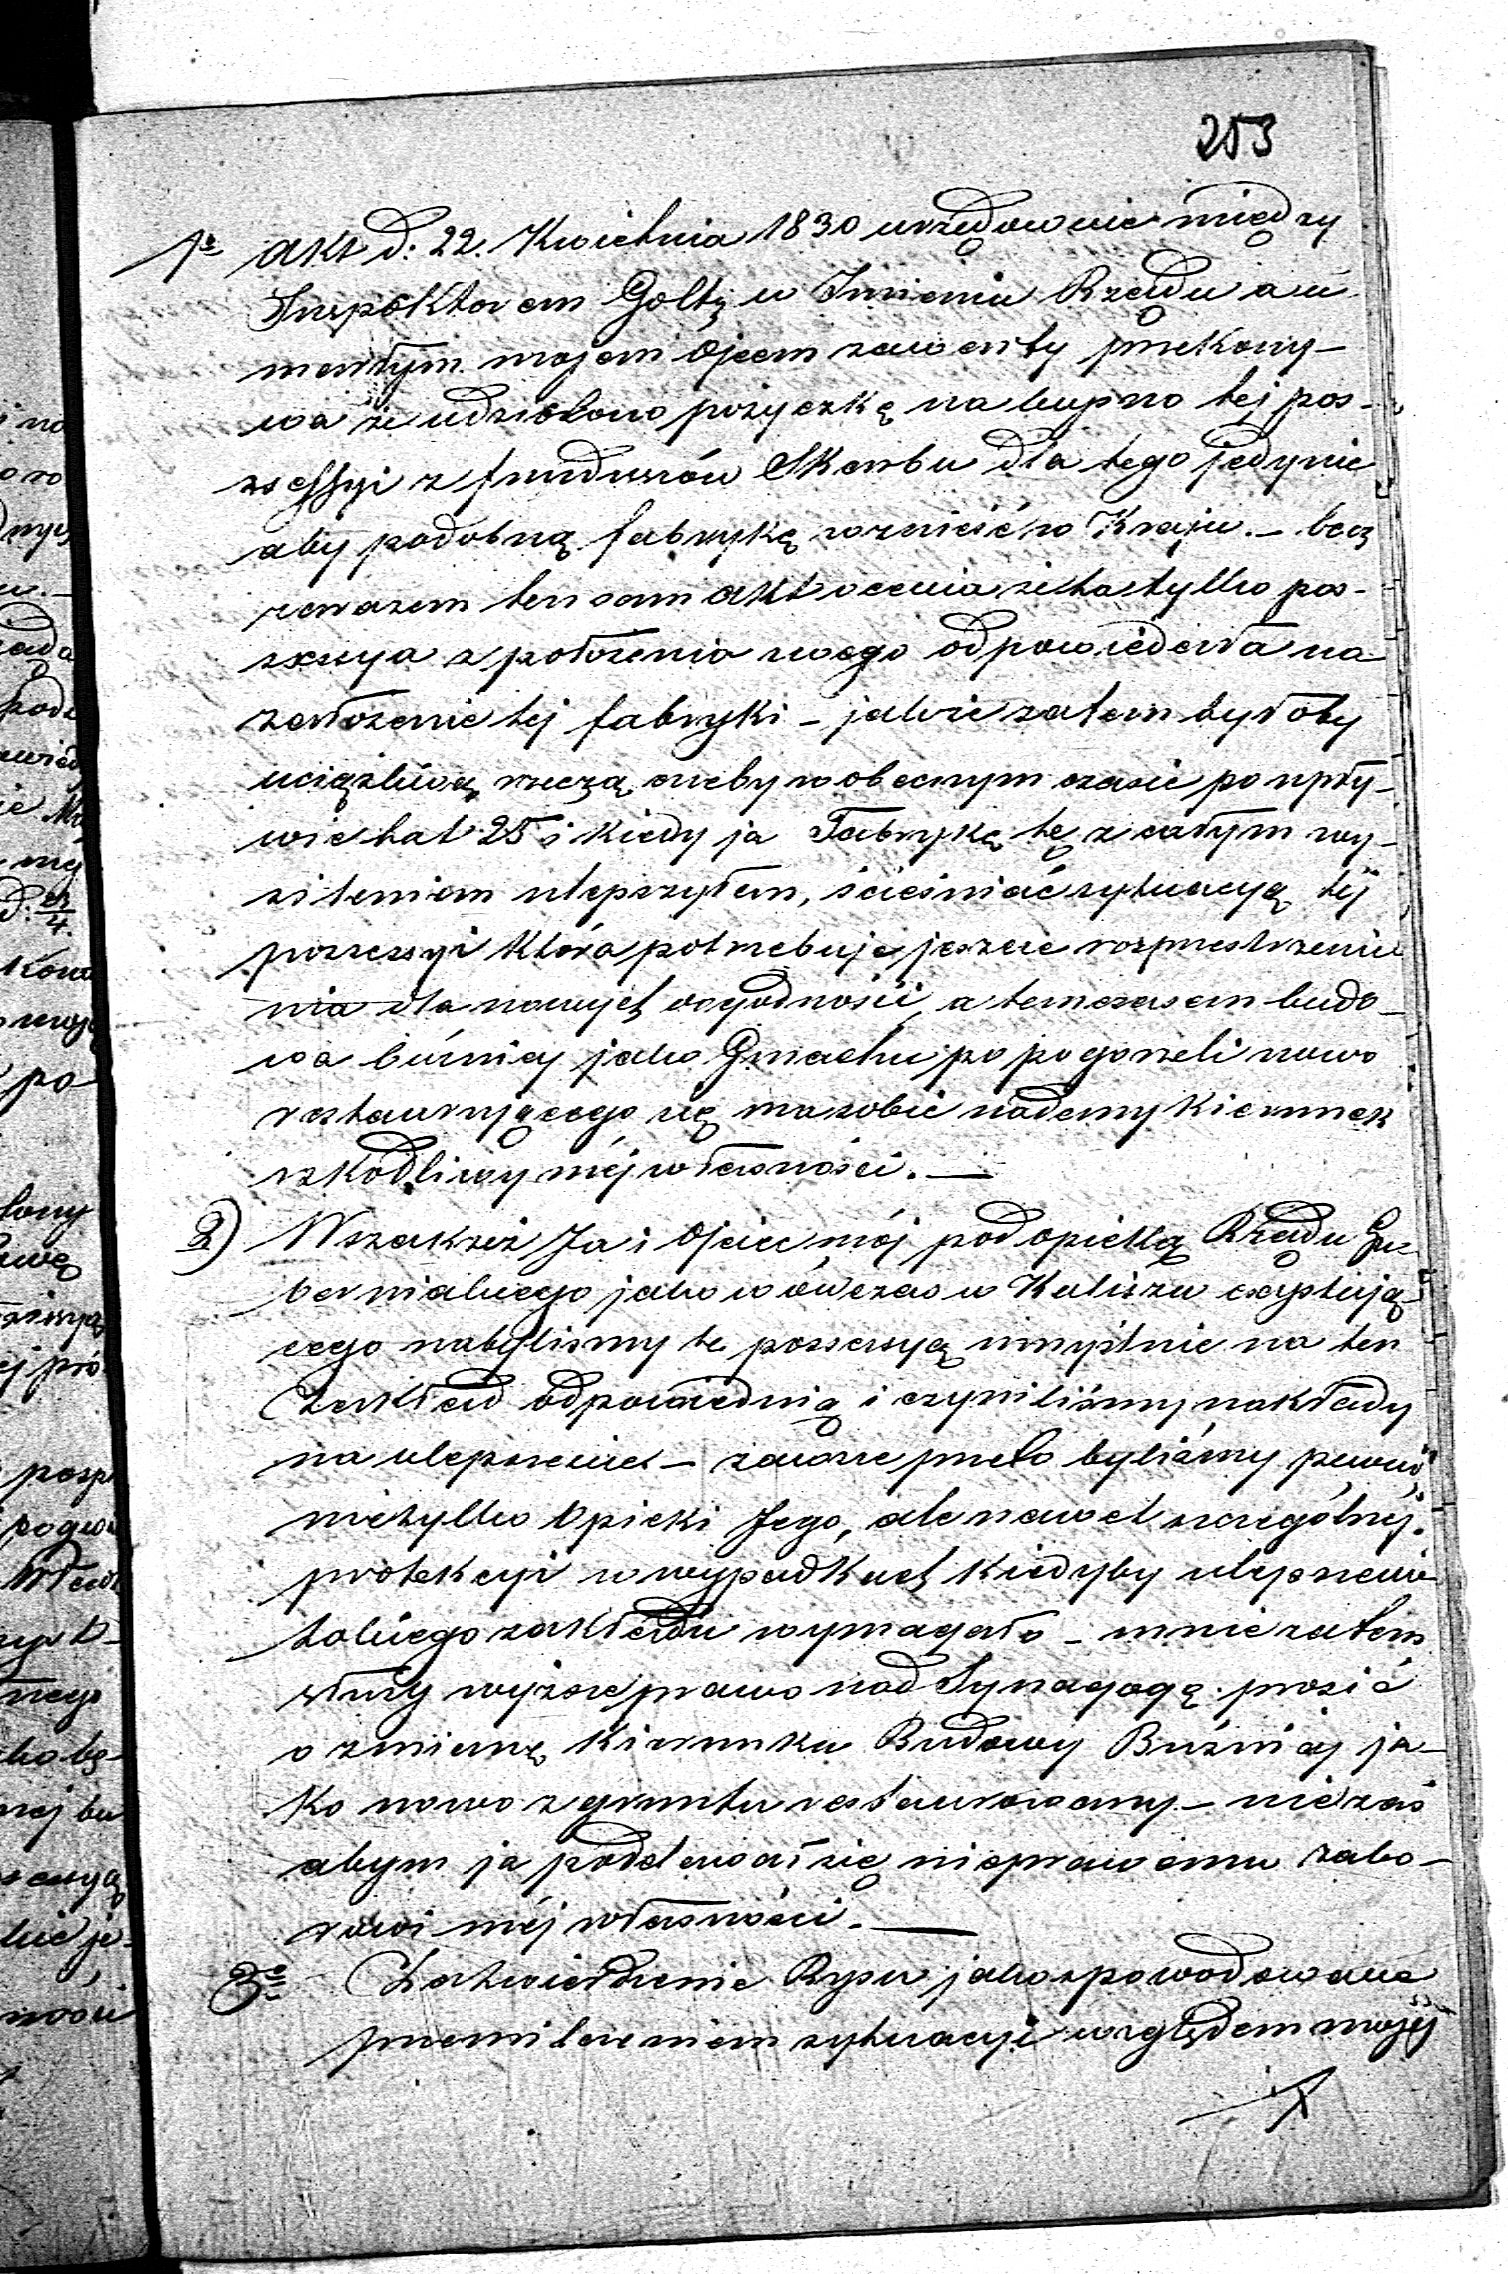 253
1º akt d: 22. Kwietnia 1830 urzędownie między
Inspektorem Goltz w Imieniu Rządu a ú
marłym mojem Ojcem zawarty przekony-
wa że udzielono pożyczkę na kupno tej pos-
sessyi z funduszów Skarbu dla tego jedynie
aby podobną fabrykę wznieść w Kraju. - lecz
zarazem ten sam akt ocenia że ta tylko pos-
sessya z położenia swego odpowiedała na
założenie tej fabryki - jakże zatem byłoby
uciążliwą rzeczą żeby w obecnym czasie po upły-
wie lat 25 i kiedy ja Fabrykę tę z całym wy-
sileniem ulepszyłem, ścieśniać sytuacyą téj
possessyi która potrzebuje jeszcze rozprzestrzenie
nia dla nowych dogodności, a temczasem budo-
wa bóźnicy jako Gmachu po pogorzeli nowo
restaurującego się ma sobie nadany kierunek
szkodliwy méj własności. -
2) Wszakżeż Ja i Ojciec mój pod opieką Rządu Gu-
bernialnego jako wówczas w Kaliszu exystują
cego nabyliśmy te possessyą umyślnie na ten
Zakład odpowiednią i czyniliśmy nakłady
na ulepszenie - zawsze przeto byliśmy pewni
nietylko Opieki Jego, ale nawet szczególnéj
protekcyi w wypadkach kiedyby ulepszenie
takiego zakładu wymagało - mnie zatem
służy wyższe prawo nad Synagogę prosić
o zmianę kierunku Budowy Bużnicy ja-
ko nowo z gruntu restaurowany - nie zaś
abym ja poddawał się nieprawemu zabo-
rowi méj własności. -
3º Zatwierdzenie Rysu jako spowodowane
przemilczeniem sytuacyi względem mojéj